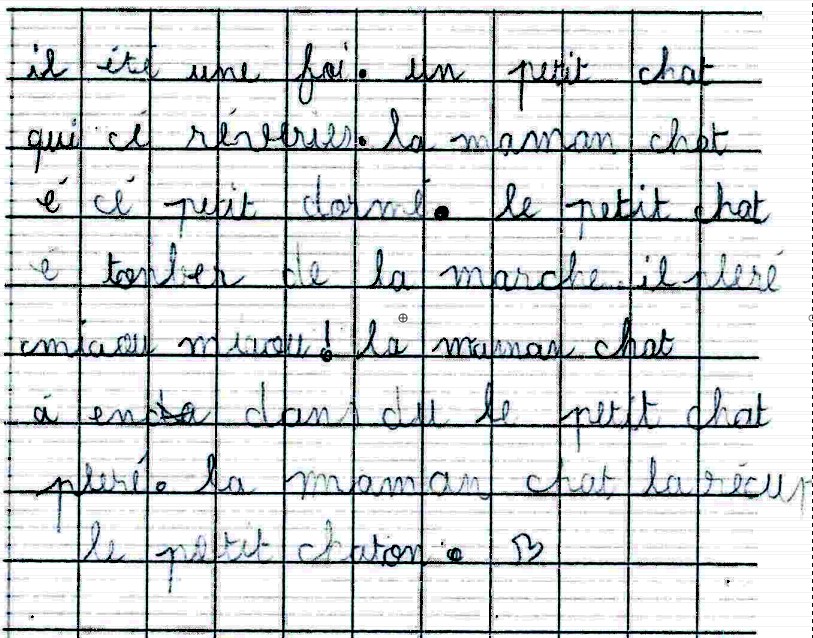 il été une foi. un petit chat
qui cé réveries. la maman chat
é cé petit dormé. le petit chat
é tonber de la marche. il pleré
miaou miaou! la maman chat
à en dans du le petit chat
pleré. la maman chat la récup
le petit chaton.